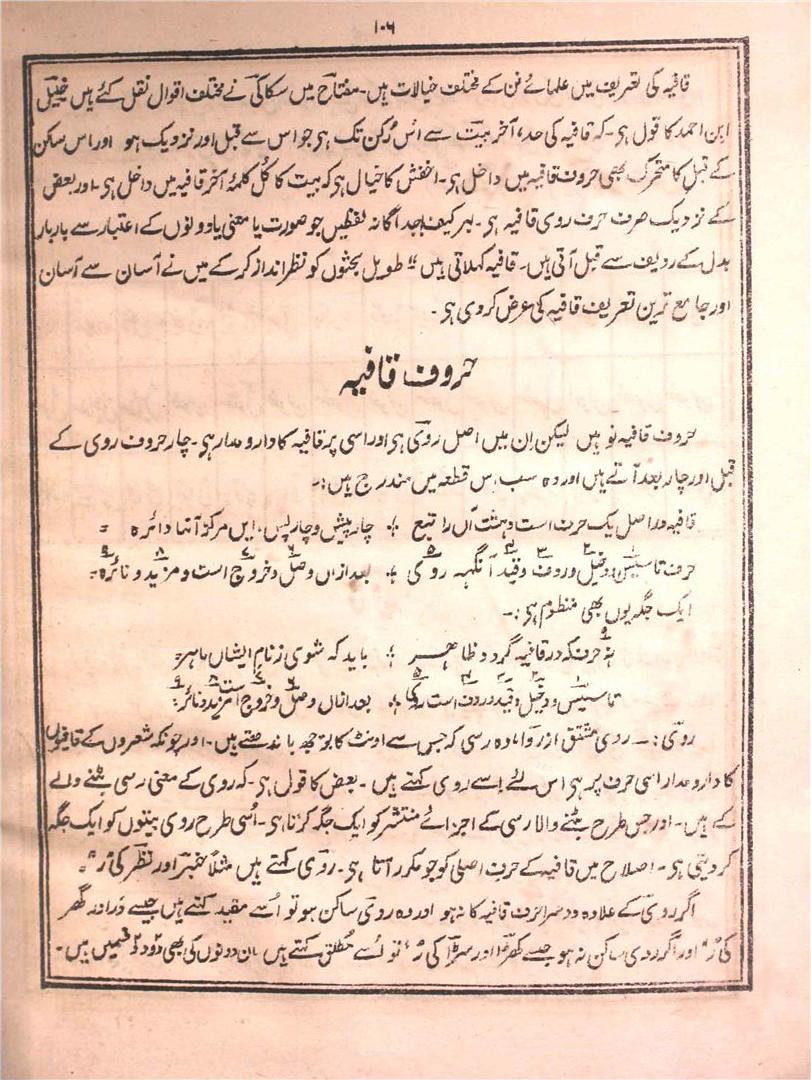 ۱۰۶
قافیہ کی تعریف میں علمائے فن کے مختلف خیالات ہیں۔ مفتاح میں سکاکی نے مختلف اقوال نقل کئے ہیں خلیل
ابن احمد کا قول ہی۔ کہ قافیہ کی حد، آخر بیت سے اس رُکن تک ہی جو اس سے قبل اور نزدیک ہو اور اس سکن
کے قبل کا متحرک بھی حروف قافیہ میں داخل ہی۔ اخفش کا خیال ہی کہ بیت کا کُل کلمۂ آخر قافیہ میں داخل ہی۔ اور بعض
کے نزدیک صرف حرف روی قافیہ ہی۔ بہر کیف جداگانہ لفظیں جو صورت یا معنی یا دونوں کے اعتبار سے بار بار
بدل کے ردیف سے قبل آتی ہیں۔ قافیہ کہلاتی ہیں " طویل بحثوں کو نظر انداز کر کے میں نے آسان سے آسان
اور جامع ترین تعریف قافیہ کی عرض کر دی ہی۔
حروف قافیہ
حروف قافیہ نو ہیں لیکن اِن میں اصل روی ہی اور اسی پر قافیہ کا دارو مدار ہی۔ چار حروف روی کے
قبل اور چار بعد آتے ہیں اور وہ سب اس قطعہ میں مندرج ہیں:۔
قافیہ در اصل یک حرف است و ہشت آں را تبع ؛ چار پیش و چار پس، ایں مرکز آنہا دائرہ =
حرف تاسیس۱ و دخیل۲ و ردف۳ و قید۴ آنگہہ روی۵ ؛ بعد ازاں وصل۶ و خروج۷ است و مزید۸ و نائرہ۹=
ایک جگہ یوں بھی منظوم ہی:۔
نہ۹ حرف کہ در قافیہ گردد ظاہر ؛ باید کہ شوی ز نام ایشاں ماہر=
تاسیس۱ و دخیل۲ و قید۳ و ردف۴ است روی۵ ؛ بعد ازاں وصل۶ و خروج۷ است مزید۸ و نائر۹=
روی:۔ روی مشتق از روا، مادہ رسی کہ جس سے اونٹ کا بوجھ باندھتے ہیں۔ اور چونکہ شعروں کے قافیوں
کا دارو مدار اسی حرف پر ہی اس لئے اسے روی کہتے ہیں۔ بعض کا قول ہی۔ کہ روی کے معنی رسی بٹنے والے
کے ہیں۔ اور جس طرح بٹنے والا رسی کے اجزائے منتشر کو ایک جگہ کرتا ہی۔ اُسی طرح روی بیتوں کو ایک جگہ
کر دیتی ہی۔ اصلاح میں قافیہ کے حرف اصلی کو جو مکرر آتا ہی۔ روی کہتے ہیں مثلاً خبر اور نظر کی "ر"۔
اگر روی کے علاوہ دوسرا حرف قافیہ کا نہ ہو اور وہ روی ساکن ہو تو اُسے مقید کہتے ہیں جیسے دَر اور گھر
کی "ر" اور اگر روی ساکن نہ ہو جیسے کھرا اور سڑا کی "ر" تو اُسے مُطلق کہتے ہیں ان دونوں کی بھی دو دو قسمیں ہیں۔